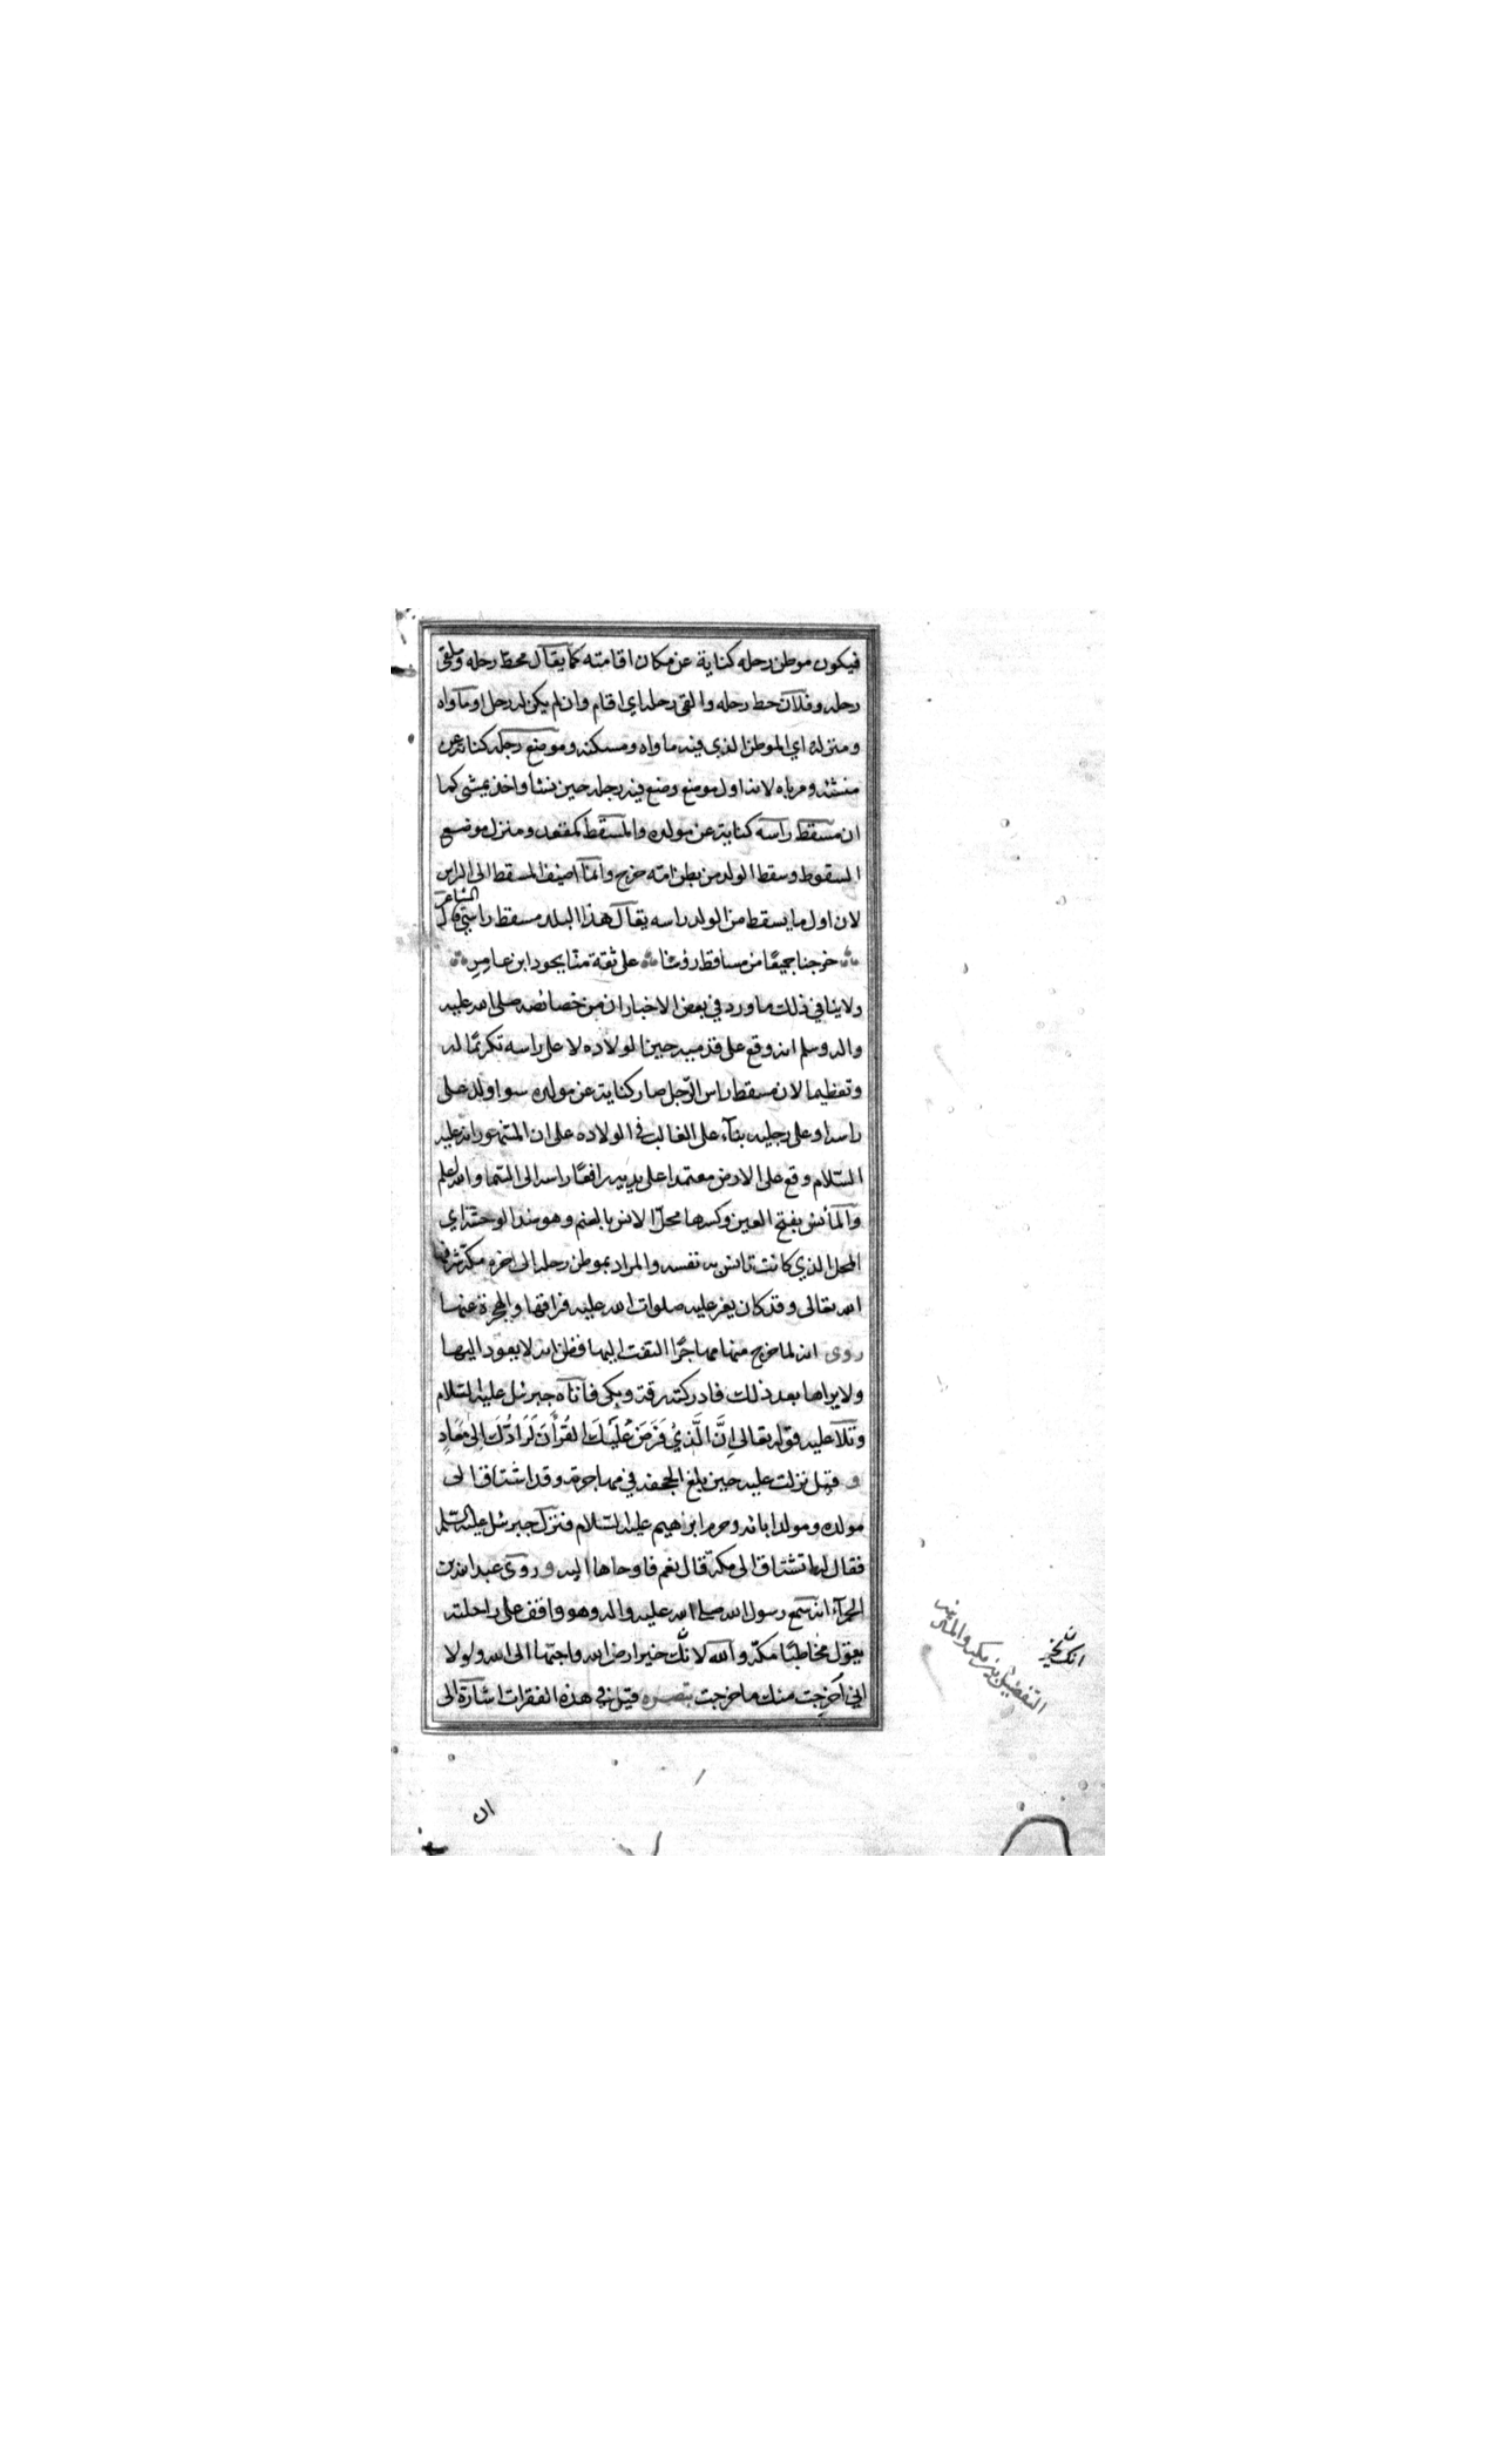 فيكون موطن رحله كناية عن مكان اقامته كما يقال محط رحله وملقى
رحله وفلان حط رحله والقى رحله اي اقام وان لم يكن له رحل او ماواه
ومنزله اي الموطن الذي فيه ماواه ومسكنه وموضع رجله كناية عن
منشئه ومرباه لانه اول موضع وضع فيه رجله حين نشا واخذ يمشي كما
ان مسقط راسه كناية عن مولده والمسقط كمقعد ومنزل موضع
السقوط وسقط الولد من بطن امّه خرج وانمّا اضيف المسقط الى الراس
لان اول ما يسقط من الولد راسه يقال هذا البلد مسقط راسي قال
الشاعر
خرجنا جميعًا من مساقط رؤسنا على ثقة منّا بجود ابن عامرِ
ولا ينافي ذلك ما ورد في بعض الاخبار ان من خصائصه صلى الله عليه
واله وسلم انه وقع على قدميه حين الولاده لا على راسه تكرمًا له
وتعظيما لان مسقط راس الرّجل صار كناية عن مولده سوا ولد على
راسه او على رجليه بناء على الغالب في الولاده على ان المشهور انه عليه
السّلام وقع على الارض معتمدا على يديه رافعًا راسه الى السّما والله اعلم
والمأنس بفتح العين وكسرها محلّ الانس بالضم وهو ضد الوحشة اي
المحل الذي كانت تانس به نفسه والمراد بموطن رحله الى اخره مكّة شرفها
الله تعالى وقد كان يعز عليه صلوات الله عليه فراقها والهجرة عنها
روى انه لما خرج منها مهاجرًا التفت اليها فظن انه لا يعود اليها
ولا يراها بعد ذلك فادركته رقة وبكى فاتاه جبرئل عليه السّلام
وتلا عليه قوله تعالى اِنَّ الَّذِيْ فَرَضَ عَلَيْكَ القُرْأَنَ لَرَادُّكَ اِلى مَعَادٍ
و قيل نزلت عليه حين بلغ الجحفه في مهاجره وقد اشتاق الى
مولده ومولد ابائه وحرم ابرهيم عليه السّلام فنزل جبرئل عليه السّلم
فقال له اتشتاق الى مكّة قال نعم فاوحاها اليه وروى عبد الله بن
الحمرآء انه سمع رسول الله صلى الله عليه واله وهو واقف على راحلته
يقول مخاطبًا مكّة والله لانّك خير ارض الله واحبّها الى الله ولولا
اني اُخرِجت منك ما خرجت تبصره قيل في هذه الفقرات اشارة الى
انك لخير
التفضيل بين مكه والمدينه
ان